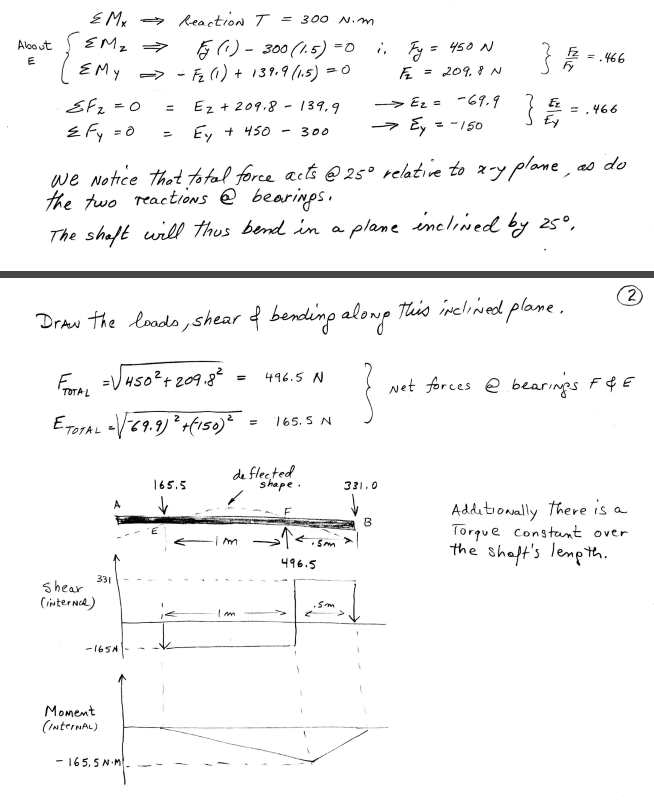 ΣMx ⟹ Reaction T = 300 N.m
About E { ΣMz ⟹ Fy (1) - 300 (1.5) = 0 ∴ Fy = 450 N } Fz/Fy = .466
ΣMy ⟹ - Fz (1) + 139.9 (1.5) = 0 Fz = 209.8 N
ΣFz = 0 = Ez + 209.8 - 139.9 → Ez = -69.9 } Ez/Ey = .466
ΣFy = 0 = Ey + 450 - 300 → Ey = -150
We Notice that total force acts @ 25° relative to x-y plane, as do
the two reactions @ bearings.
The shaft will thus bend in a plane inclined by 25°.
2
Draw the loads, shear & bending along this inclined plane.
F TOTAL = √450² + 209.8² = 496.5 N } Net forces @ bearings F & E
E TOTAL = √(-69.9)² + (-150)² = 165.5 N
165.5 deflected shape. 331.0
A E F B
1 m .5m
496.5
Additionally there is a
Torque constant over
the shaft's length.
Shear
(internal)
331
1 m .5m
-165N
Moment
(INTERNAL)
- 165.5 N.M